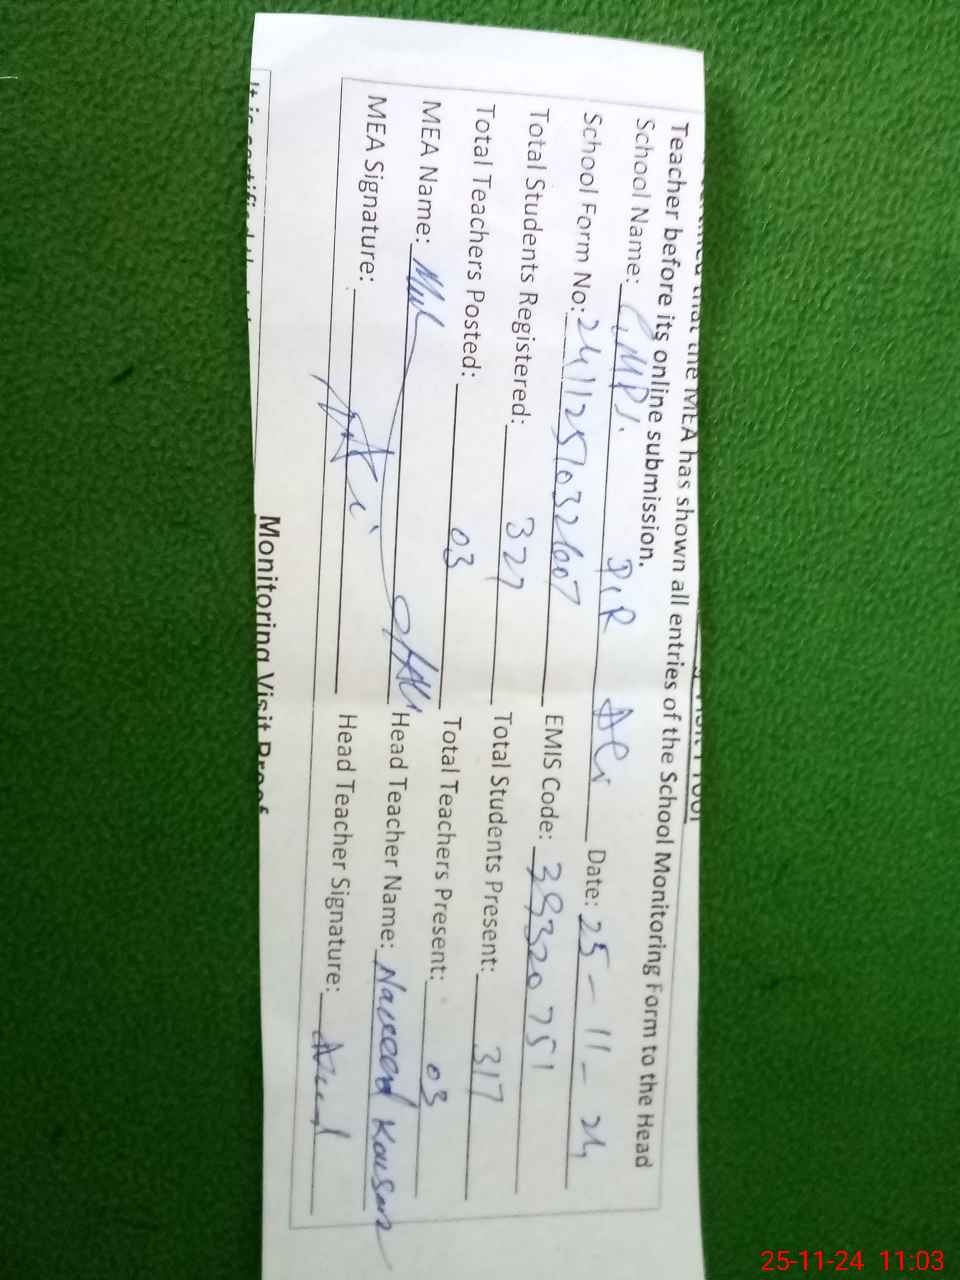 that the MEA has shown all entries of the School Monitoring Form to the Head
Teacher before its online submission.
School Name: GMPS. PIR Ali Date: 25-11-24
School Form No: 24112571032607 EMIS Code: 39320751
Total Students Registered: 327 Total Students Present: 317
Total Teachers Posted: 03 Total Teachers Present: 03
MEA Name: Head Teacher Name: Naveed Kousar
MEA Signature: Head Teacher Signature:
Monitoring Visit Proof
It is certified
25-11-24 11:03